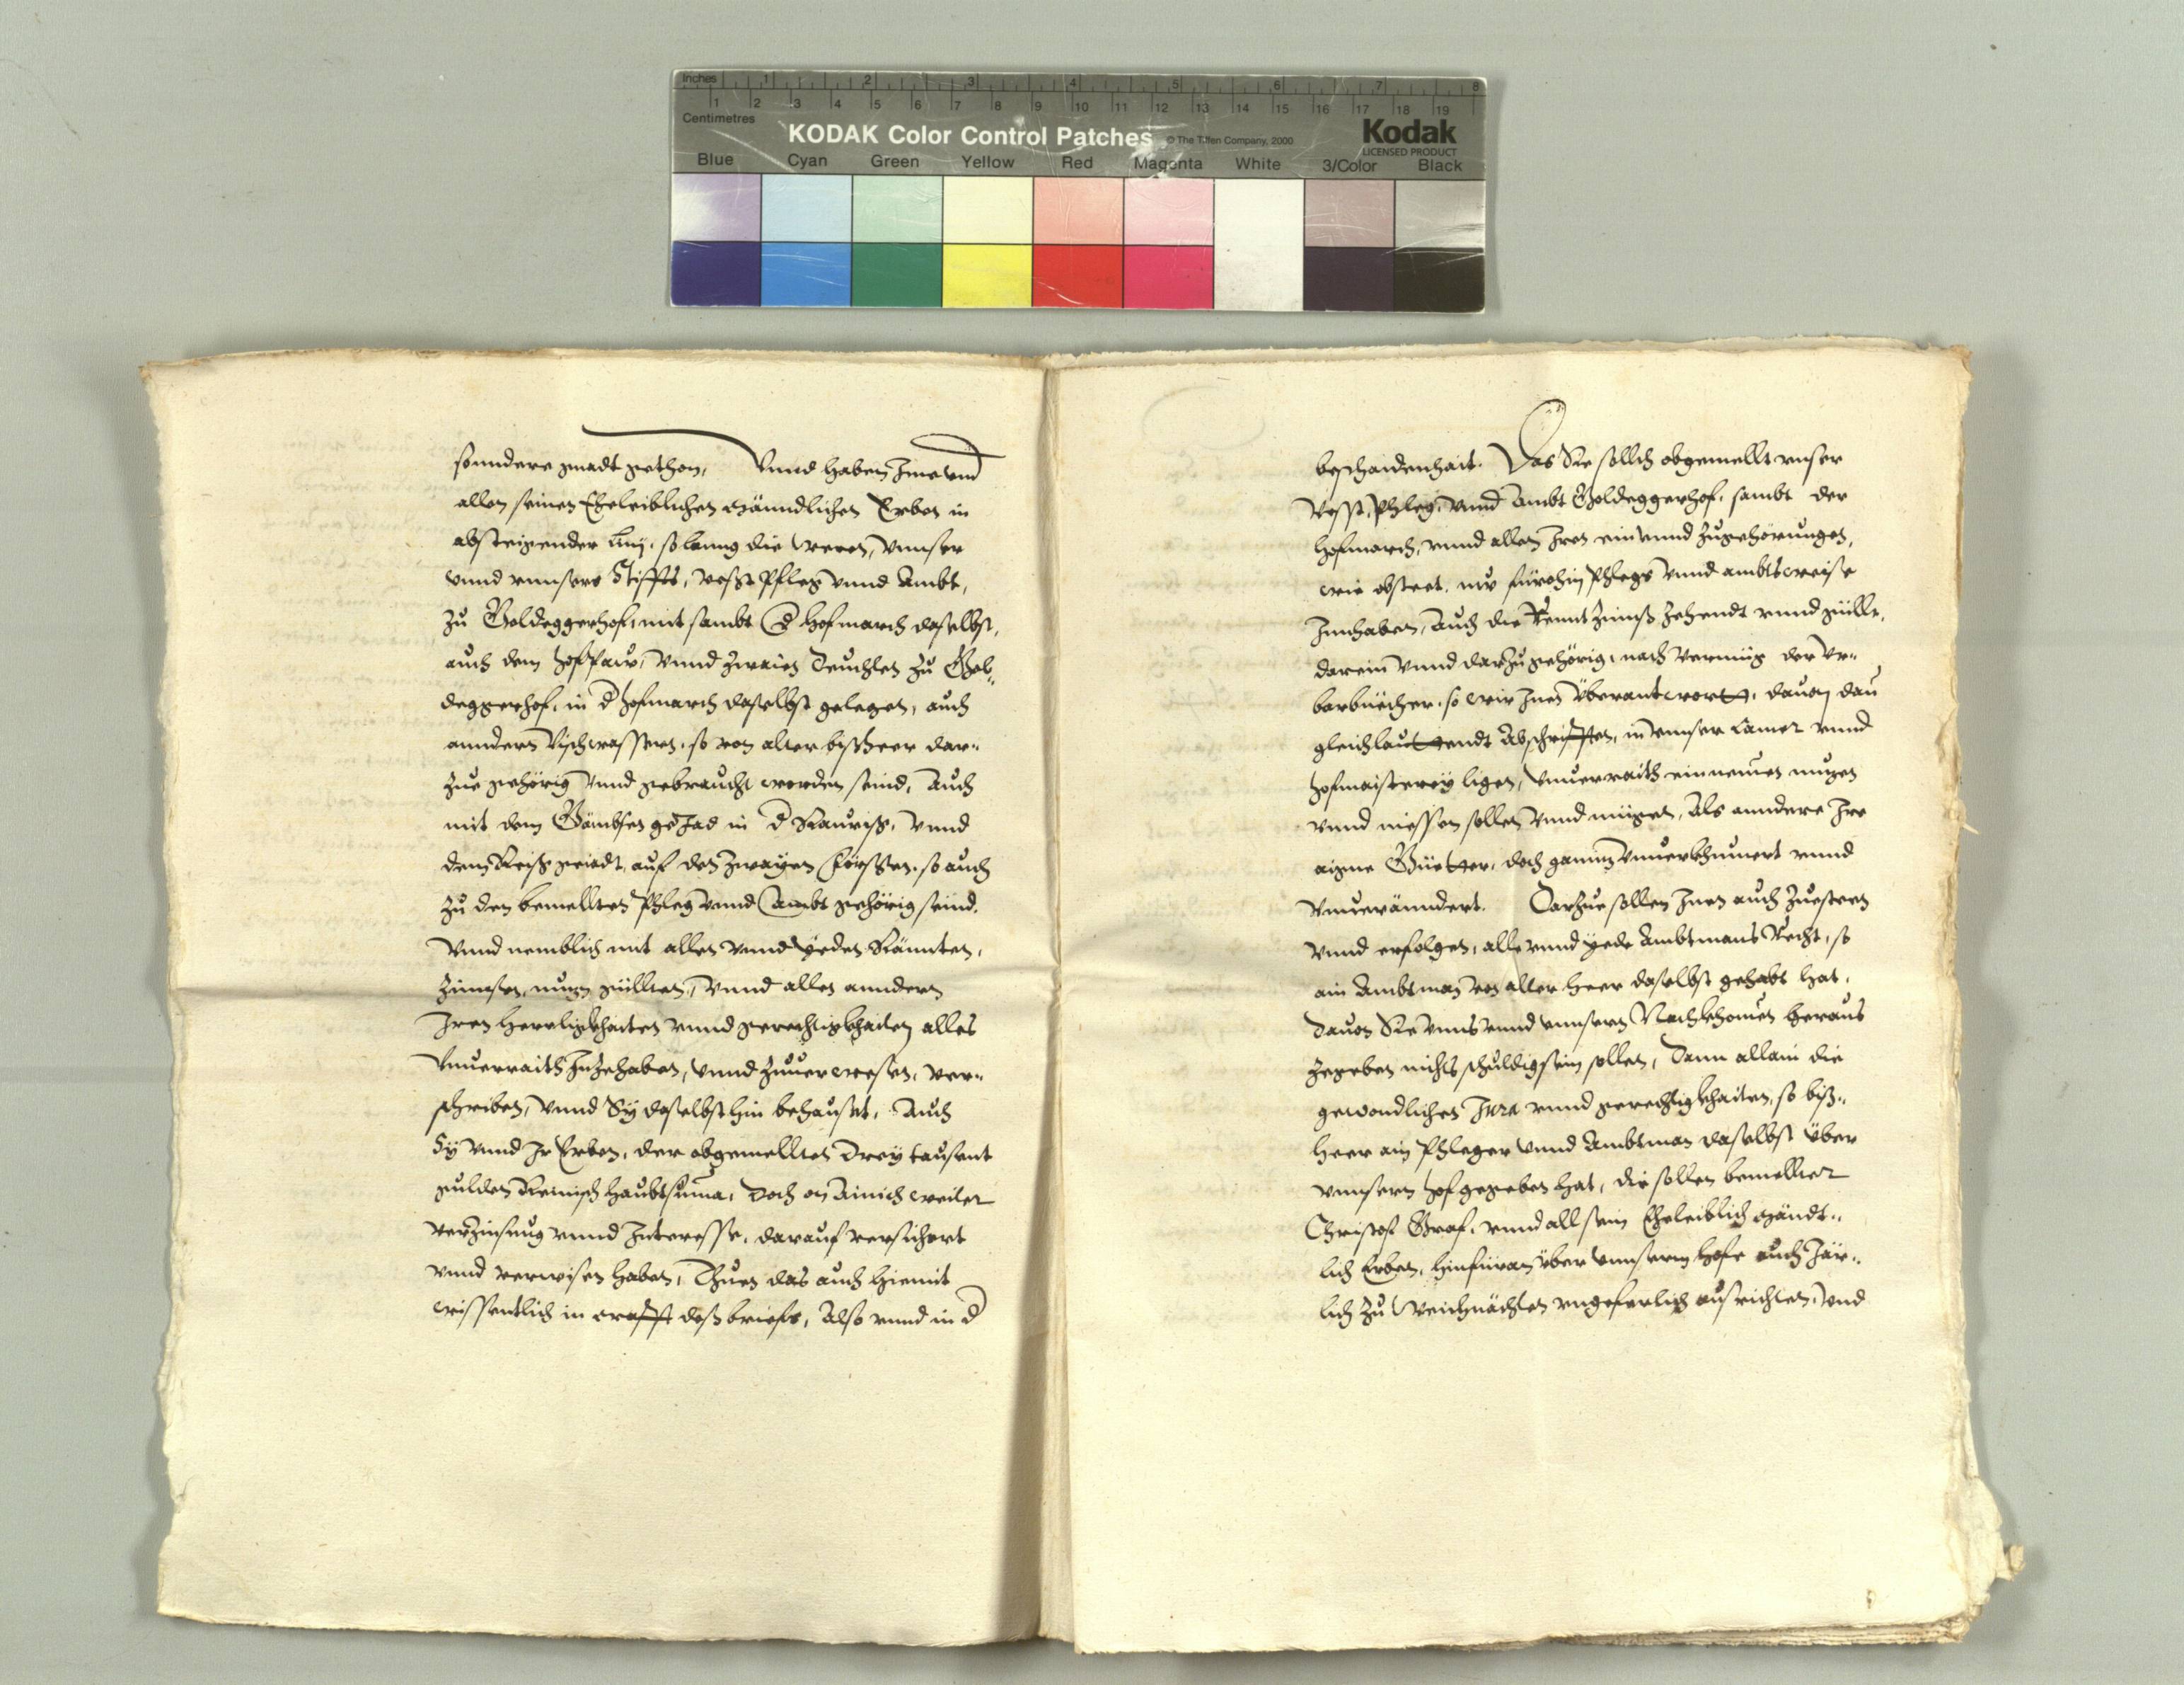 Inches 1 2 3 4 5 6 7 8
1 2 3 4 5 6 7 8 9 10 11 12 13 14 15 16 17 18 19
Centimetres
KODAK Color Control Patches © The Tiffen Company, 2000 Kodak
LICENSED PRODUCT
Blue Cyan Green Yellow Red Magenta White 3/Color Black
sonndere gnadt gethon, Vnnd haben Jme vnd
allen seinen Eheleiblichen Männdlichen Erben in
absteigender Liny, so lanng die weren, Vnnser
vnnd vnnsers Stiffts, vesst Pfleg vnnd Ambt,
zu Goldeggerhof, mit sambt d Hofmarch daselbst,
auch dem hofpaw, Vnnd zwaien Teuchten zu Gol-
deggerhof, in d hofmarch daselbst gelegen, auch
anndern Vischwassern, so von alter bissheer dar-
zue gehörig vnnd gebraucht worden seind, Auch
mit dem Gämbsen geJad in d Rauriß, Vnnd
dem Reißgeiadt, auf den zwayen Förssten, so auch
zu den bemellten Phleg vnnd Ambt gehörig seind.
Vnnd nemblich mit allen vnnd yeden Rännten,
Zinnsen, nuzn güllten, Vnnd allen anndern
Jren Herrligkhaiten vnnd gerechtigkhaiten alles
Vnuerraith Jnzehaben, Vnnd zuuerwesen, ver-
schriben, Vnnd Sy daselbsthin behauset, Auch
Sy vnnd Jr Erben, der obgemellten Drey tausent
gulden Reinisch Haubtsuma, Doch on Ainich weiter
verzinsung vnnd Interesse, darauf versichert
vnnd verwisen haben, Thuen das auch hiemit
wissentlich in crafft deß briefs, Also vnnd in d
beschaidenhait. Das Sie sollch obgemellt vnser
Vesst, Phleg, Vnnd Ambt Goldeggerhof, sambt der
hofmarch, vnnd allen Jren ein vnnd zugehörungen,
wie obsteet, nu fürohin Phlegs Vnnd ambtsweise
Jnnhaben, Auch die Rennt Zinnß Zehendt vnnd güllt,
darein Vnnd darzu gehörig, nach Vermüg der Vr-
barbüecher, so wir Jnen Überantwort, dauon dan
gleichlauttendt Abschrifften, in vnnser Camer vnnd
hofmaisterey ligen, Vnuerraith einnemen nuzen
vnnd niessen sollen Vnnd mügen, Als anndere Jre
aigne Güetter, doch gannz Vnuerkhumert vnnd
Vnueränndert. Darzue sollen Jnen auch zuesteen
Vnnd erfolgen, alle vnnd yede Ambtmans Recht, so
ain Ambtman von alter heer daselbst gehabt hat,
Dauon Sie Vnns vnnd vnnsern Nachkhomen heraus
zegeben nichts schuldig sein sollen, Dann allain die
gewondlichen Jura vnnd gerechtigkhaiten, so biß-
heer ain Phleger Vnnd Ambtman daselbst über
vnnsern hof gegeben hat, die sollen bemellter
Christof Graf, vnnd all sein Eheleiblich Mändt-
lich Erben, hinfüran über vnnsern hofe auch Jär-
lich zu Weichnächten vngeferlich ausrichten, Vnd